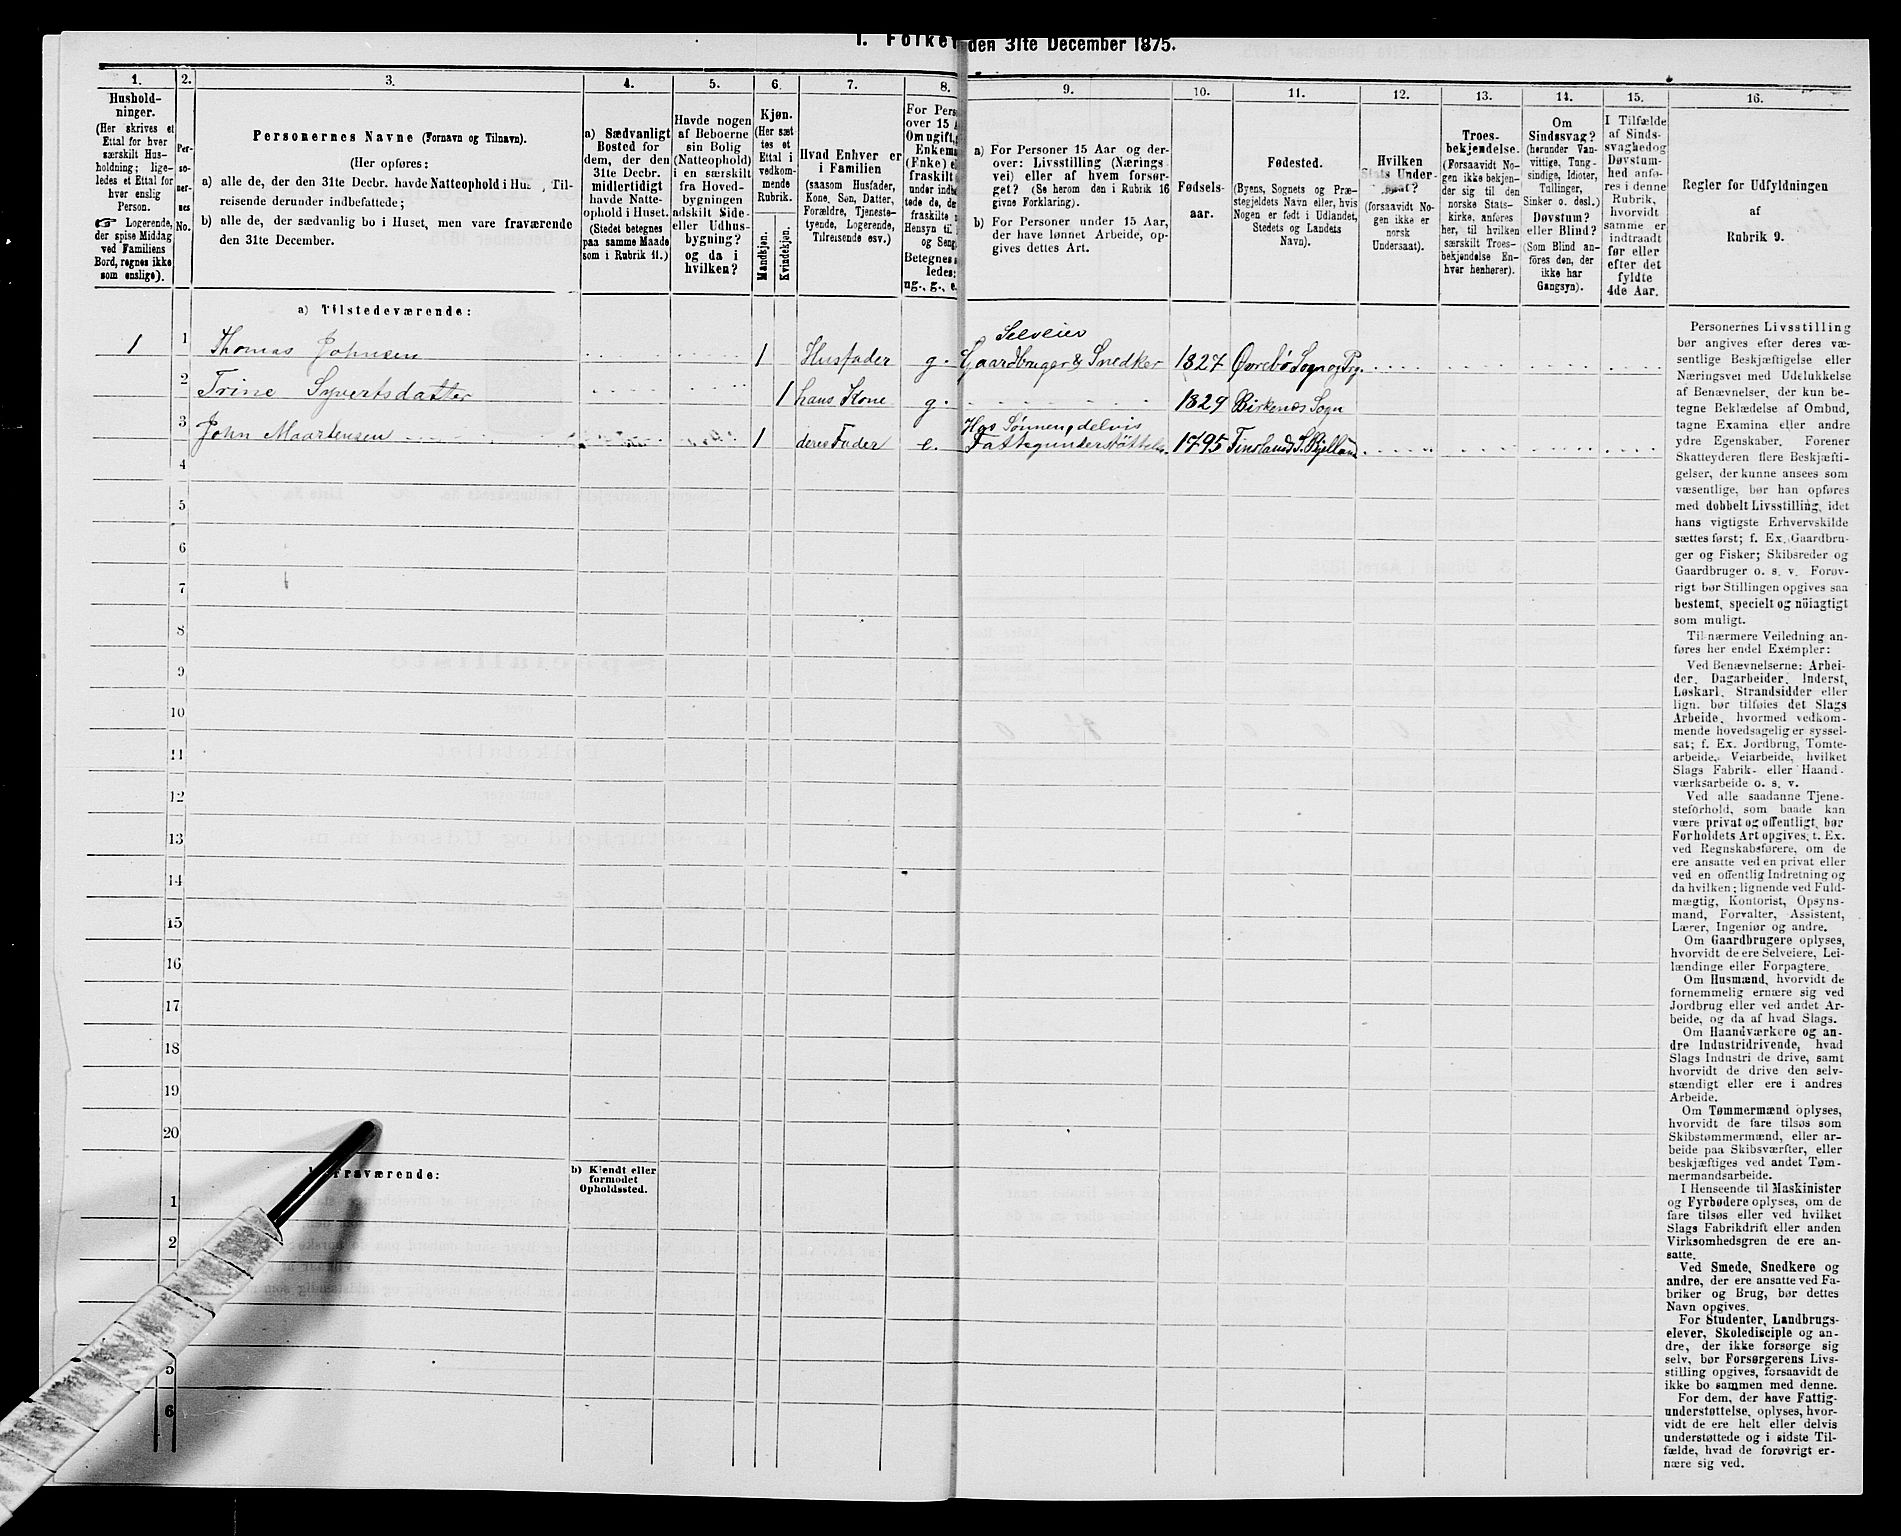 1. Folket den 31te December 1875.
1.
2.
3.
4.
5.
6.
7.
8.
9.
10.
11.
12.
13.
14.
15.
16.
Hushold-
ninger.
(Her skrives et
Ettal for hver
særskilt Hus-
holdning; lige-
ledes et Ettal for
hver enslig
Person.
☞ Logerende,
der spise Middag
ved Familiens
Bord, regnes ikke
som enslige).
Per-
so-
ner-
nes
No.
Personernes Navne (Fornavn og Tilnavn).
(Her opføres:
a) alle de, der den 31te Decbr. havde Natteophold i Hus , Til-
reisende derunder indbefattede;
b) alle de, der sædvanlig bo i Huset, men vare fraværende
den 31te December.
a) Sædvanligt
Bosted for
dem, der den
31te Decbr.
midlertidigt
havde Natte-
ophold i Huset.
(Stedet betegnes
paa samme Maade
som i Rubrik 11.)
Havde nogen
af Beboerne
sin Bolig
(Natteophold)
i en særskilt
fra Hoved-
bygningen
adskilt Side-
eller Udhus-
bygning?
og da i
hvilken?
Kjøn.
(Her sæt
tes et
Ettal i
vedkom-
mende
Rubrik.
Mandkjøn.
Kvindekjøn.
Hvad Enhver er
i Familien
(saasom Husfader,
Kone, Søn, Datter,
Forældre, Tjeneste-
tyende, Logerende,
Tilreisende osv.)
For Pers
over 15 A
Om ugift,
Enkema
(Enke) e
fraskilt
under indbe
tede de, de
fraskilte
Hensyn til
og Seng
Betegnes
ledes:
ug., g., e.
a) For Personer 15 Aar og der-
over: Livsstilling (Nærings
vei) eller af hvem forsør-
get? (Se herom den i Rubrik 16
givne Forklaring).
b) For Personer under 15 Aar,
der have lønnet Arbeide, op-
gives dettes Art.
Fødsels-
aar.
Fødested.
(Byens, Sognets og Præ-
stegjeldets Navn eller, hvis
Nogen er født i Udlandet,
Stedets og Landets
Navn).
Hvilken
Stats Under-
saat?
(forsaavidt No-
gen ikke er
norsk
Undersaat).
Troes-
bekjendelse.
(Forsaavidt No-
gen ikke bekjen-
der sig til den
norske Stats-
kirke, anføres
her, til hvilken
særskilt Troes-
bekjendelse En-
hver henhører).
Om
Sindssvag?
(herunder Van-
vittige, Tung-
sindige, Idioter,
Tullinger,
Sinker o. desl.)
Døvstum?
eller Blind?
(Som Blind an-
føres den, der
ikke har
Gangsyn).
I Tilfælde
af Sinds-
svaghed og
Døvstum-
hed anfø-
res i denne
Rubrik,
hvorvidt
samme er
indtraadt
før eller
efter det
fyldte
4de Aar.
Regler for Udfyldningen
af
Rubrik 9.
a) Tilstedeværende:
Selveier
1 1 Thomas Johnsen 1 Husfader g. Gaardbruger & Snedker 1827 Øvrebø Sogn og Prg.
2 Trine Syvertsdatter 1 hans Kone g. 1829 Birkenæs Sogn
Hos Sønnen, delvis
3 John Maartensen 1 deres Fader e. Fattigunderstøttelse. 1795 Finsland
4
5
6
7
8
9
10
11
12
13
14
15
16
17
18
19
20
raværende:
b) Kjendt eller
formodet
Opholdssted.
1
2
5
6
Personernes Livsstilling
bør angives efter deres væ-
sentlige Beskjæftigelse eller
Næringsvei med Udelukkelse
af Benævnelser, der kun be-
tegne Beklædelse af Ombud,
tagne Examina eller andre
ydre Egenskaber. Forener
Skatteyderen flere Beskjæfti-
gelser, der kunne ansees som
væsentlige, bør han opføres
med dobbelt Livsstilling, idet
hans vigtigste Erhvervskilde
sættes først; f. Ex. Gaardbru-
ger og Fisker; Skibsreder og
Gaardbruger o. s. v. Forøv-
rigt bør Stillingen opgives saa
bestemt, specielt og nöiagtigt
som muligt.
Til nærmere Veiledning an-
føres her endel Exempler:
Ved Benævnelserne: Arbei-
der, Dagarbeider, Inderst,
Løskarl, Strandsidder eller
lign. bør tilføies det Slags
Arbeide, hvormed vedkom-
mende hovedsagelig er syssel-
sat; f. Ex. Jordbrug, Tomte-
arbeide, Veiarbeide, hvilket
Slags Fabrik- eller Haand-
værksarbeide o. s. v.
Ved alle saadanne Tjene-
steforhold, som baade kan
være privat og offentligt, bør
Forholdets Art opgives, t. Ex.
ved Regnskabsførere, om de
ere ansatte ved en privat eller
ved en offentlig Indretning og
da hvilken; lignende ved Fuld-
mægtig, Kontorist, Opsyns-
mand, Forvalter, Assistent,
Lærer, Ingeniør og andre.
Om Gaardbrugere oplyses,
hvorvidt de ere Selveiere, Lei-
lændinge eller Forpagtere.
Om Husmænd, hvorvidt de
fornemmelig ernære sig ved
Jordbrug eller ved andet Ar-
beide, og da af hvad Slags.
Om Haandværkere og an-
dre Industridrivende, hvad
Slags Industri de drive, samt
hvorvidt de drive den selv-
stændigt eller ere i andres
Arbeide.
Om Tømmermænd oplyses,
hvorvidt de fare tilsøs som
Skibstømmermænd, eller ar-
beide paa Skibsværfter, eller
beskjæftiges ved andet Tøm-
mermandsarbeide.
I Henseende til Maskinister
og Fyrbødere oplyses, om de
fare tilsøs eller ved hvilket
Slags Fabrikdrift eller anden
Virksomhedsgren de ere an-
satte.
Ved Smede, Snedkere og
andre, der ere ansatte ved Fa-
briker og Brug, bør dettes
Navn opgives.
For Studenter, Landbrugs-
elever, Skoledisciple og an-
dre, der ikke forsørge sig
selv, bør Forsørgerens Livs-
stilling opgives, forsaavidt de
ikke bo sammen med denne.
For dem, der have Fattig-
understøttelse, oplyses, hvor-
vidt de ere helt eller delvis
understøttede og i sidste Til-
fælde, hvad de forøvrigt er-
nære sig ved.